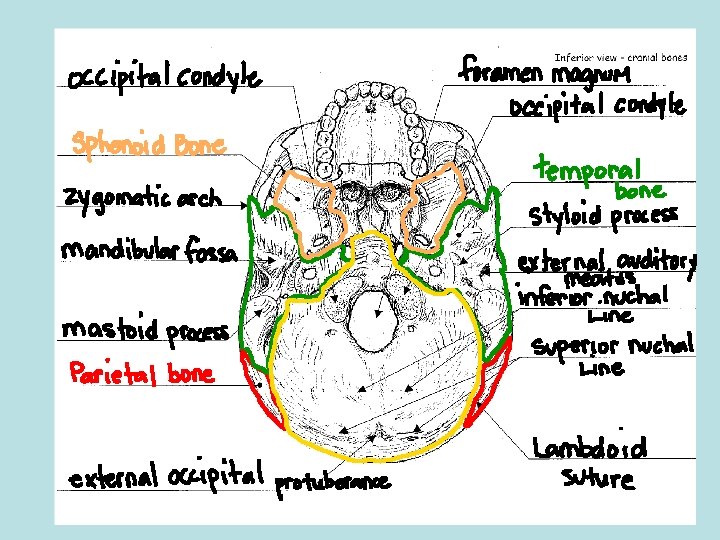 Inferior view - cranial bones
occipital condyle
foramen magnum
occipital condyle
Sphenoid Bone
temporal
bone
zygomatic arch
styloid process
mandibular fossa
external auditory
meatus
inferior nuchal
Line
mastoid process
superior nuchal
Line
Parietal bone
Lambdoid
suture
external occipital protuberance